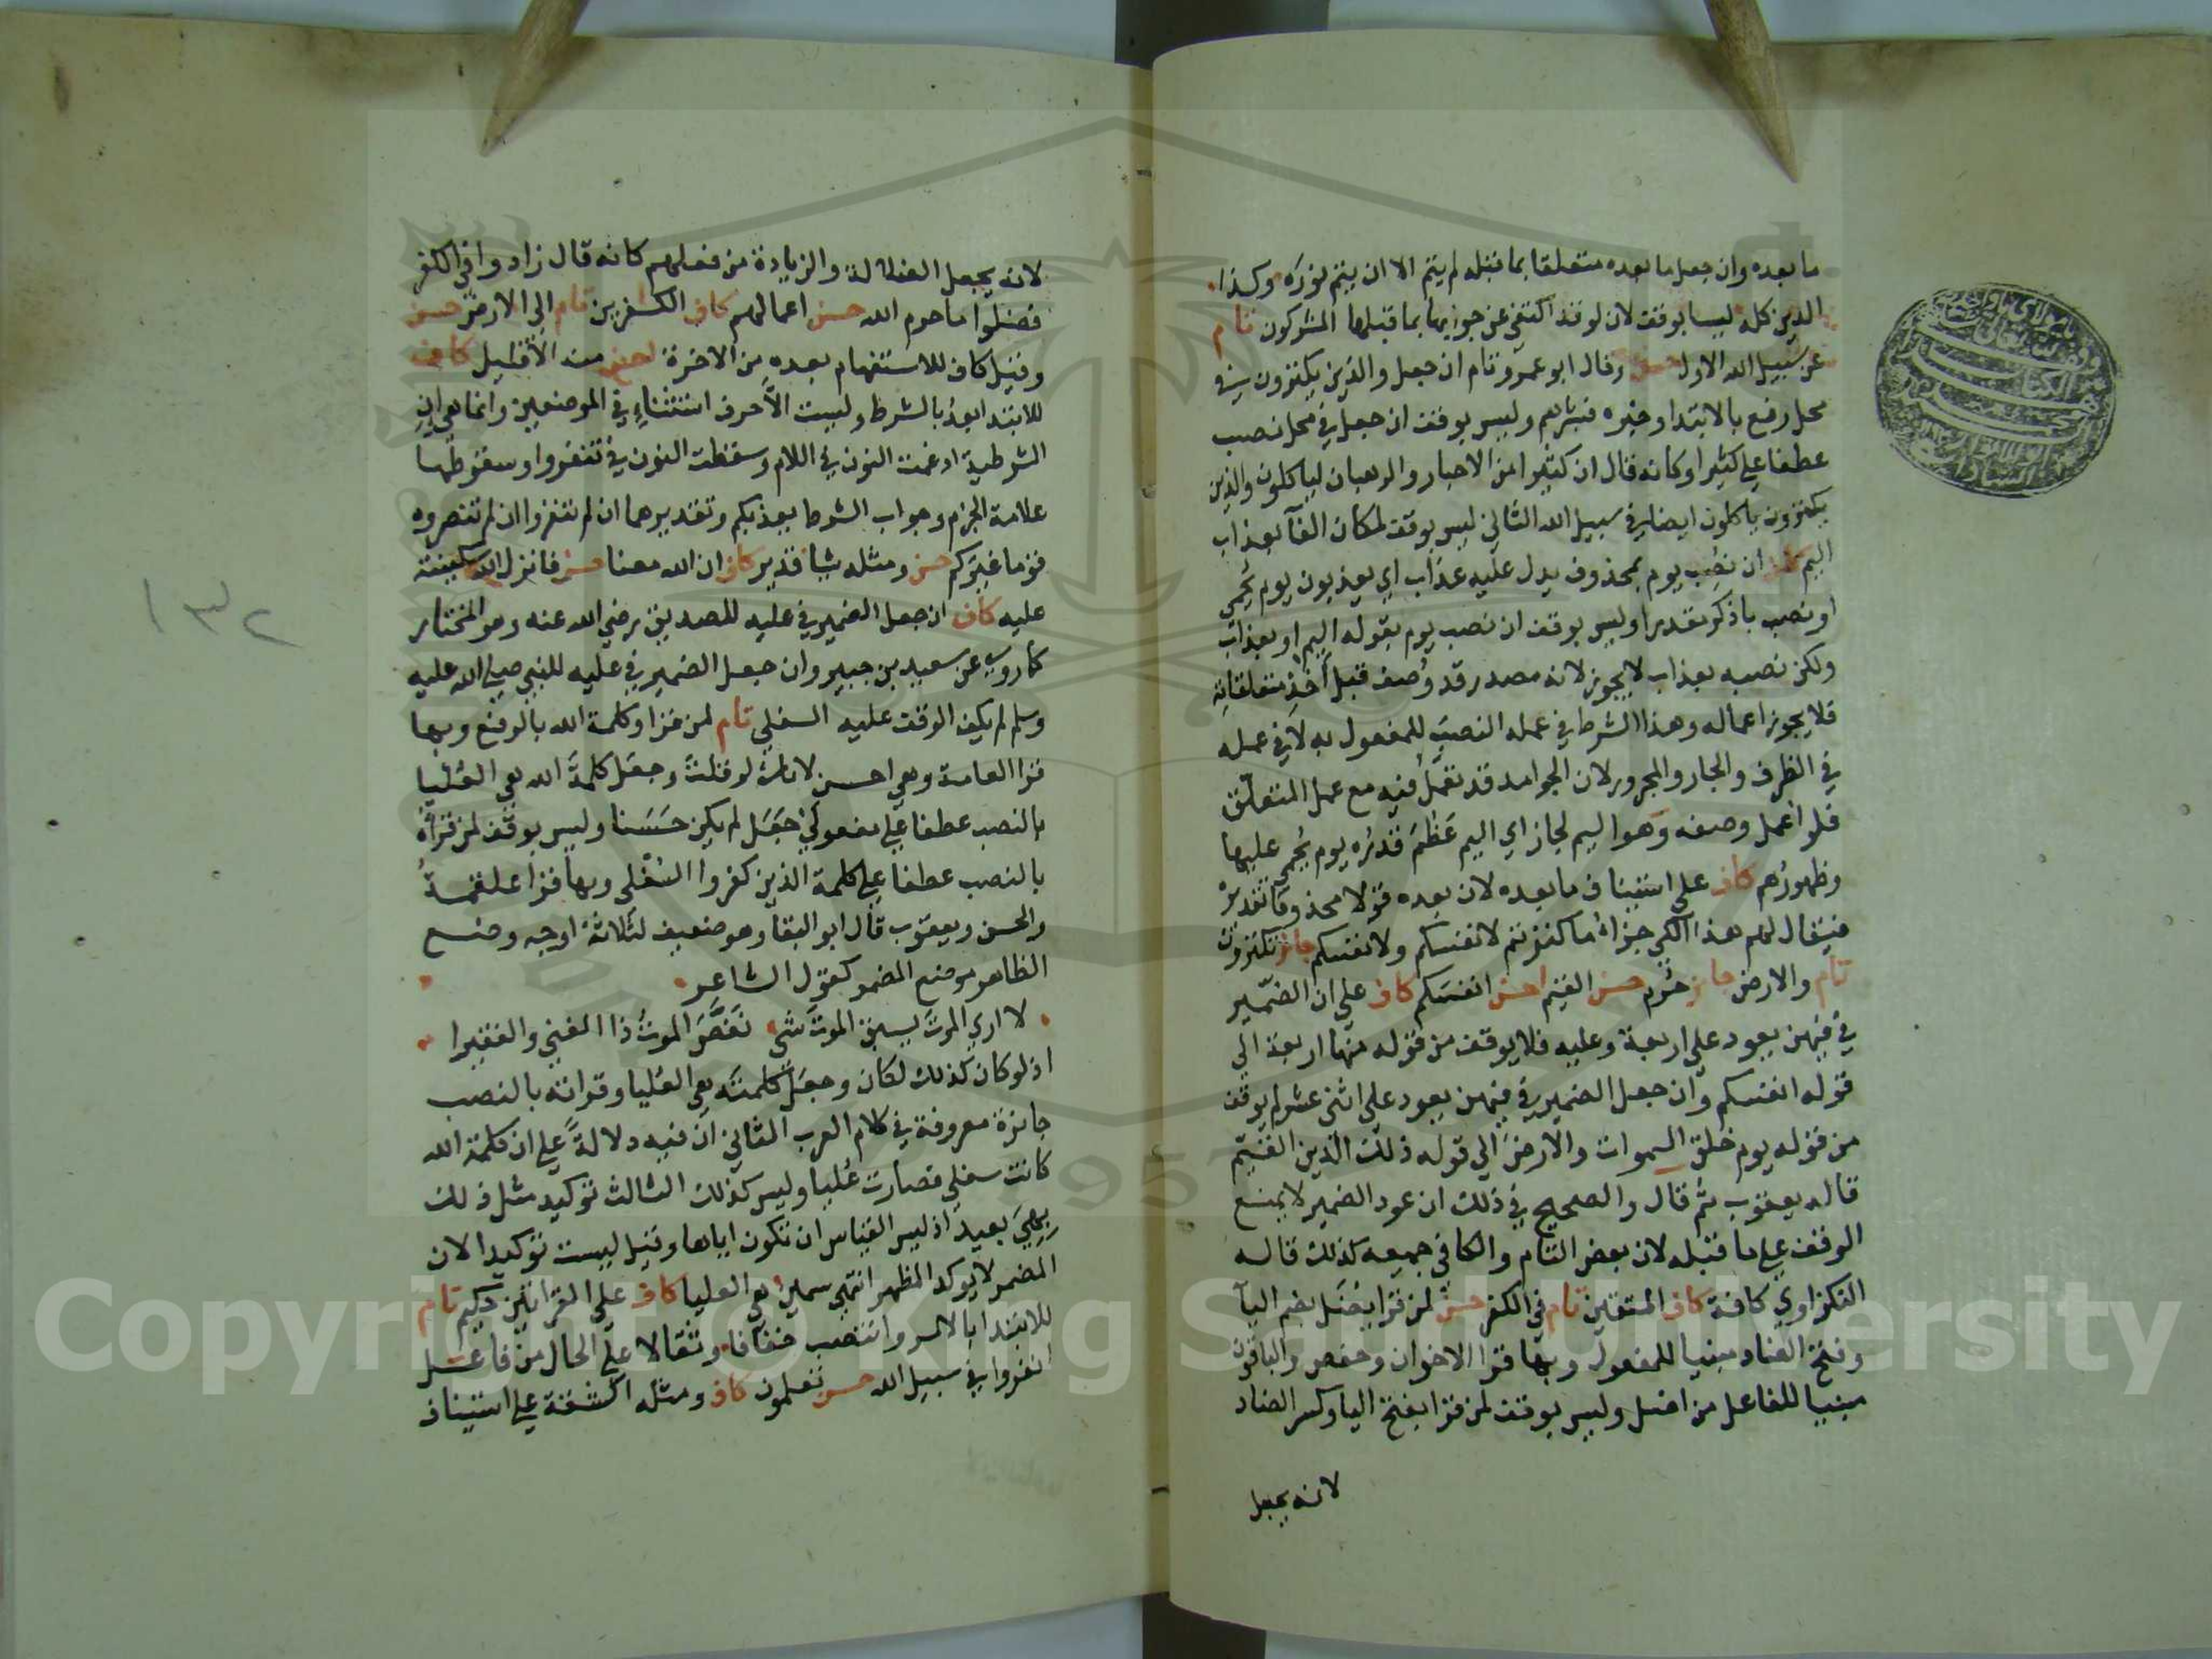 ما بعده وان جعل ما بعده متعلقا بما قبله لم يتم الا ان يتم نوره وكذا
الدين كله ليس بوقف لان لو قد اكتفى عن جوابها بما قبلها المشركون تام
عن سبيل الله الاول حسن وقال ابو عمرو تام ان جعل والذين يكنزون في
محل رفع بالابتدا وخبره فبشرهم وليس بوقف ان جعل في محل نصب
عطفا على كثيرا وكانه قال ان كثيرا من الاحبار والرهبان لياكلون والذين
يكنزون ياكلون ايضا في سبيل الله الثاني ليس بوقف لمكان الفآ بعذاب
اليم كاف ان نصب يوم بمحذوف يدل عليه عذاب اي يعذبون يوم يحمى
او نصب باذكر مقدرا وليس بوقف ان نصب يوم بقوله اليم او بعذاب
ولكن نصبه بعذاب لا يجوز لانه مصدر قد وُصف قبل اخذ متعلقاته
فلا يجوز اعماله وهذا الشرط في عمله النصب للمفعول به لا في عمله
في الظرف والجار والمجرور لان الجوامد قد تعمل فيه مع عمل المتعلق
فلو اعمل وصفه وهو اليم لجاز اي اليم عَظُمَ قدره يوم يحمى عليها
وظهورهم كاف على استيناف ما بعده لان بعده قولا محذوفا تقديره
فيقال لهم هذا الكي جزاء ما كنزتم لانفسكم ولانفسكم جائز تكنزون
تام والارض جايز حُرُم حسن القيم احسن انفسكم كاف على ان الضمير
في فيهن يعود على اربعة وعليه فلا يوقف من قوله منها اربعة الى
قوله انفسكم وان جعل الضمير في فيهن يعود على اثنى عشر لم يوقف
من قوله يوم خلق السموات والارض الى قوله ذلك الدين القيّم
قاله يعقوب ثم قال والصحيح في ذلك ان عود الضمير لا يمنع
الوقف على ما قبله لان بعض التام والكافي جميعه كذلك قاله
النكزاوي كافة كاف المتقين تام في الكفر حسن لمن قرا يُضَل بضم اليآ
وفتح الضاد مبنيا للمفعول وبها قرا الاخوان وحفص والباقون
مبنيا للفاعل من اضل وليس بوقف لمن قرا بفتح اليا وكسر الضاد
لانه يجعل
لانه يجعل الضلالة والزيادة من فعلهم كانه قال زادوا في الكفر
فضلوا ما حرم الله حسن اعمالهم كاف الكافرين تام الى الارض حسن
وقيل كاف للاستفهام بعده من الاخرة احسن منه الا قليل كاف
للابتدا بعد بالشرط وليست الّا حرف استثناء في الموضعين وانما هي ان
الشرطية ادغمت النون في اللام وسقطت النون في تنفروا وسقوطها
علامة الجزم وجواب الشرط يعذبكم وتقديرهما ان لم تنفروا ان لم تنصروه
قوما غيركم حسن ومثله شيا قدير كاف ان الله معنا حسن فانزل الله سكينته
عليه كاف ان جعل الضمير في عليه للصديق رضي الله عنه وهو المختار
كما روي عن سعيد بن جبير وان جعل الضمير في عليه للنبي صلى الله عليه
وسلم لم يكف الوقف عليه السفلى تام لمن قرا وكلمة الله بالرفع وبها
قرا العامة وهي احسن لانك لو قلت وجعل كلمة الله هي العُليا
بالنصب عطفا على مفعولي جَعَل لم يكن حَسَنا وليس بوقف لمن قراه
بالنصب عطفا على كلمة الذين كفروا السفلى وبها قرا علقمة
والحسن ويعقوب قال ابو البقا وهو ضعيف لثلاثة اوجه وضع
الظاهر موضع المضمر كقول الشاعر
لا ارى الموت يسبق الموت شي نَغَّصَ الموتُ ذا الغنى والفقيرا
اذ لو كان كذلك لكان وجعل كلمته هي العُليا وقراته بالنصب
جائزة معروفة في كلام العرب الثاني ان فيه دلالة على ان كلمة الله
كانت سفلى فصارت عُليا وليس كذلك الثالث توكيد مثل ذلك
بهي بعيد اذ ليس القياس ان تكون اياها وقيل ليست توكيدا لان
المضمر لا يوكد المظهر انتهى سمين هي العليا كاف على القراتين حكيم تام
للابتدا بالامر وانتصب خفافا وثقالا على الحال من فاعل
انفروا في سبيل الله حسن تعلمون كاف ومثله الشقة على استيناف
١٣٢
Copyright © King Saud University
1957